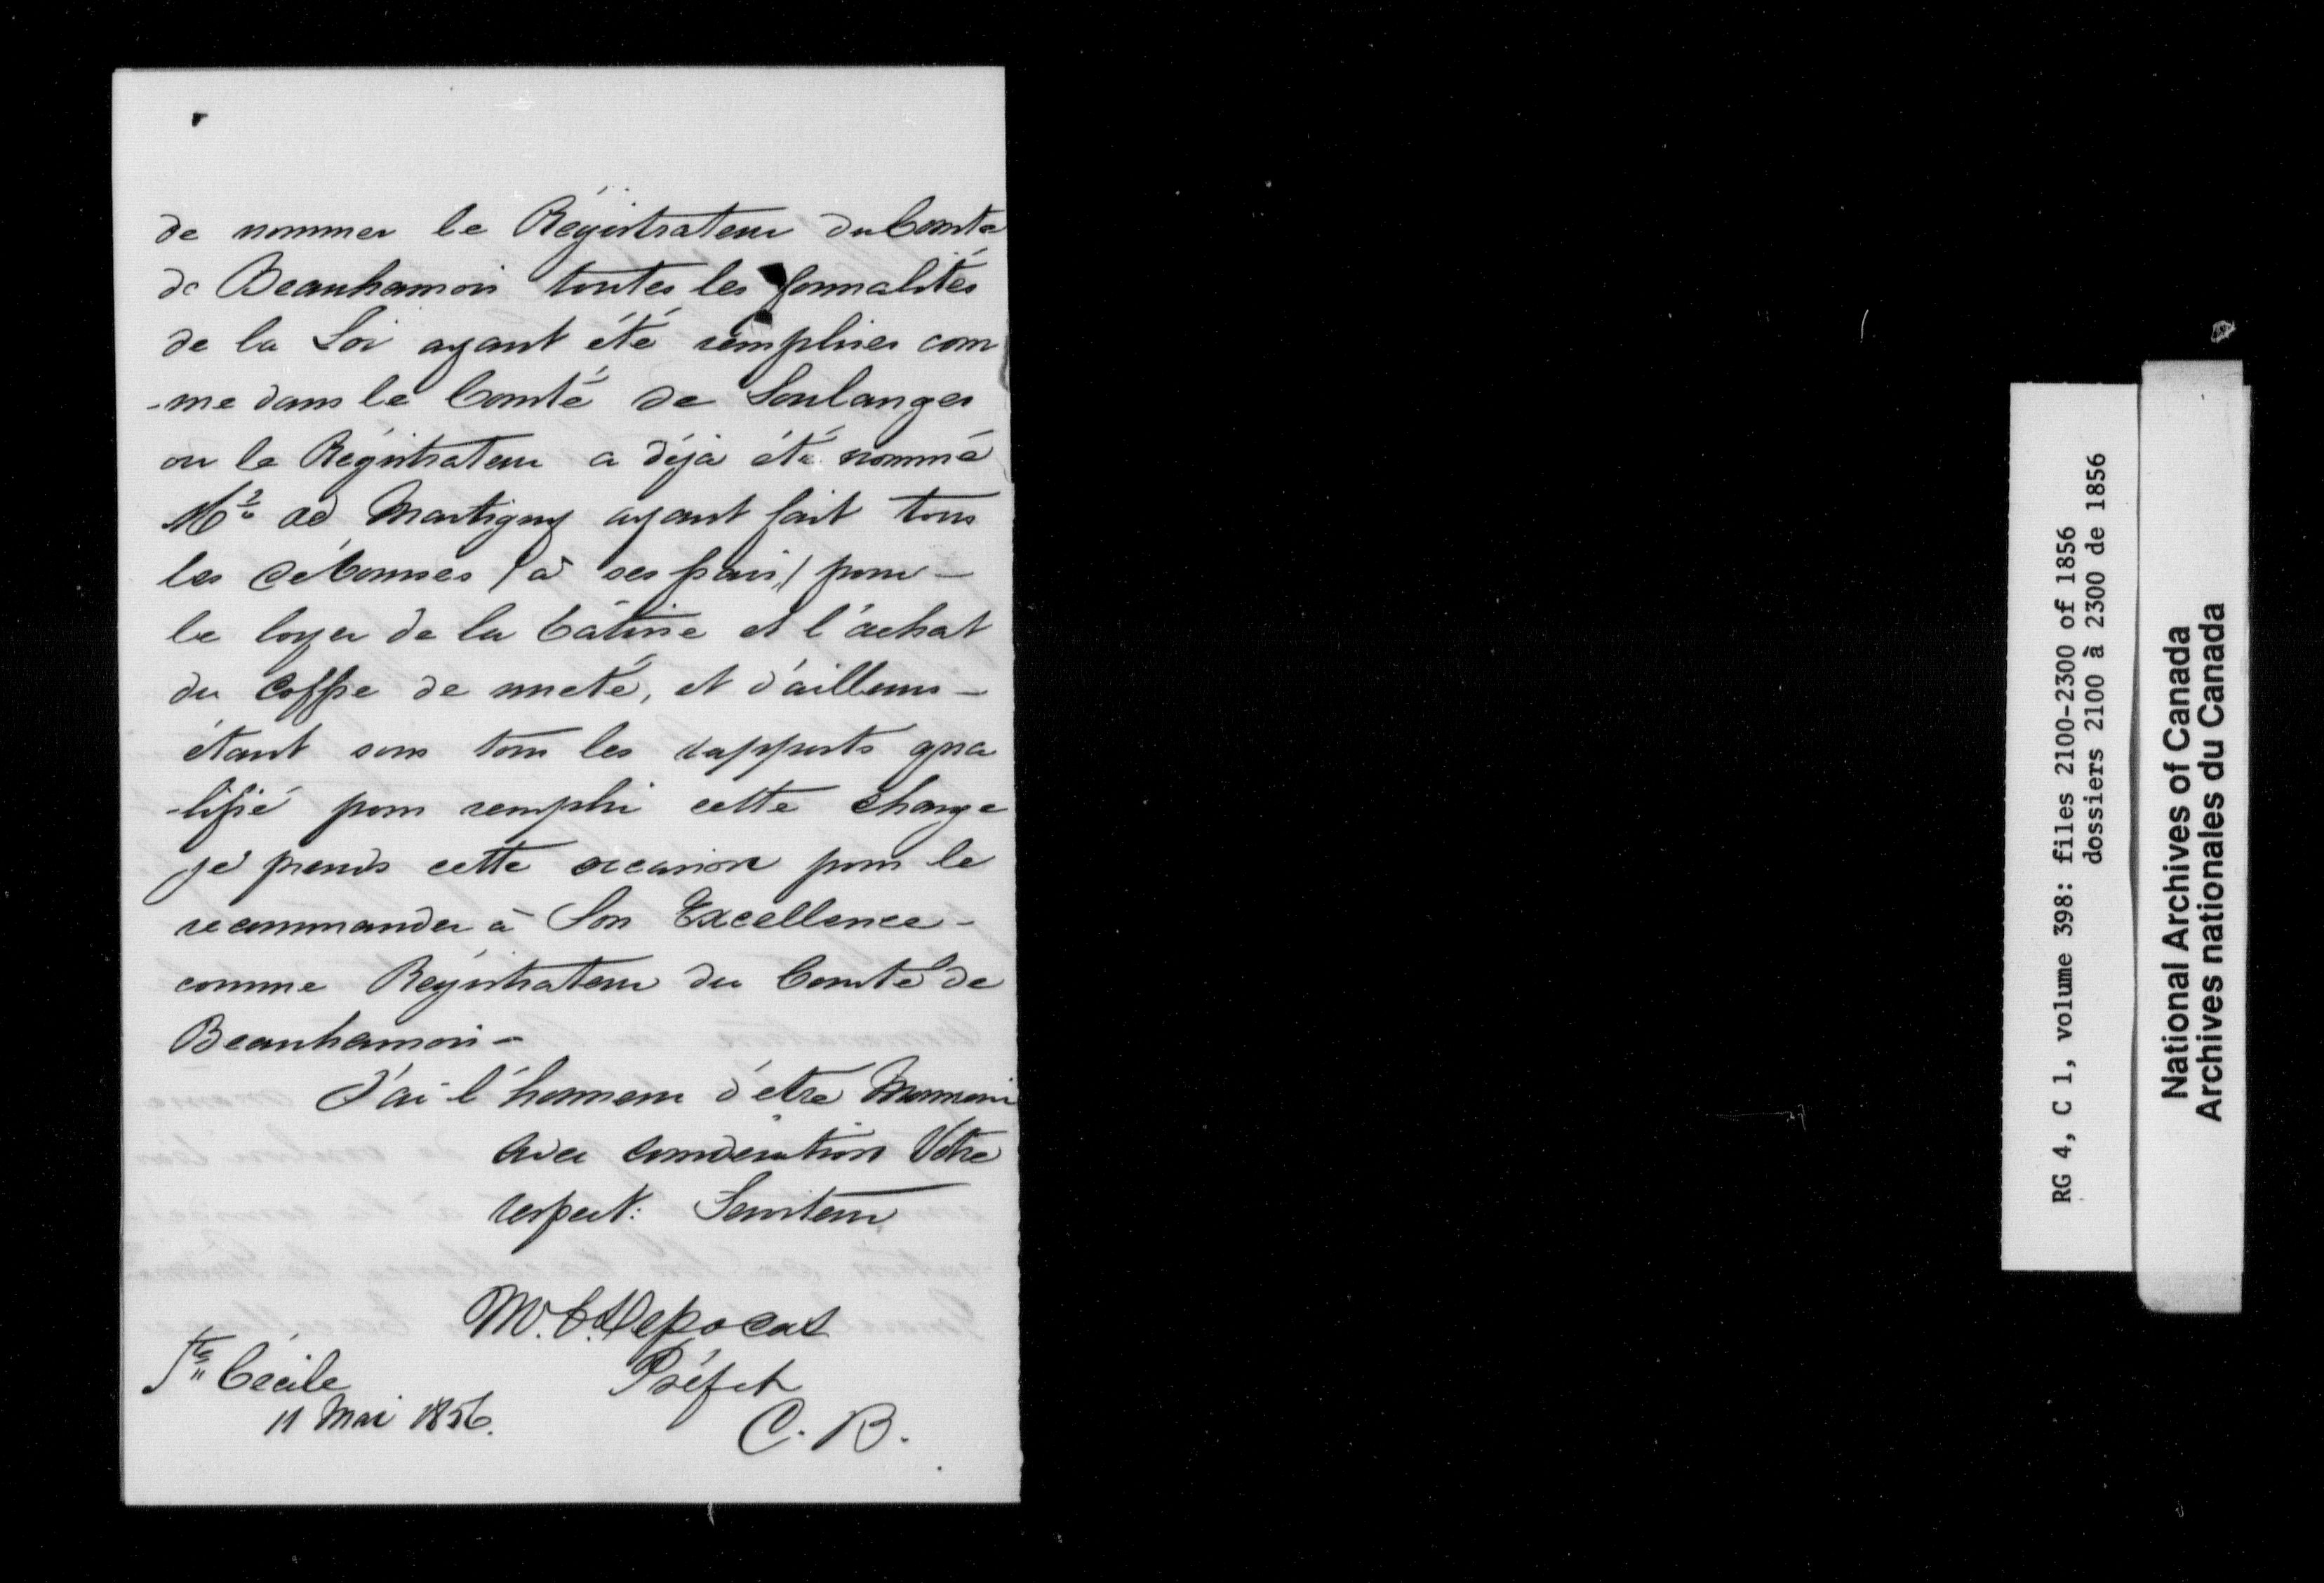 de nommer le Régistrateur du Comté
de Beauharnois toutes les formalités
de la Loi ayant été remplies com
-me dans le Comté de Soulanges
ou le Régistrateur a déja été nommé
Mr. de Martigny ayant fait tous
les débourses (à ses frais) pour -
le loyer de la bâtisse et l'achat
du coffre de sureté, et d'ailleurs -
étant sous tous les rapports qua
-lifié pour rempli cette charge
je prends cette occasion pour le
recommander à Son Excellence -
comme Régistrateur du Comté de
Beauharnois -
J'ai l'honneur d'etre Monsieur
avec consideration Votre
respect: Serviteur
M. C. Depocas
Préfet
C. B.
Ste Cécile
11 Mai 1856.
RG 4, C 1, volume 398: files 2100-2300 of 1856
dossiers 2100 à 2300 de 1856
National Archives of Canada
Archives nationales du Canada